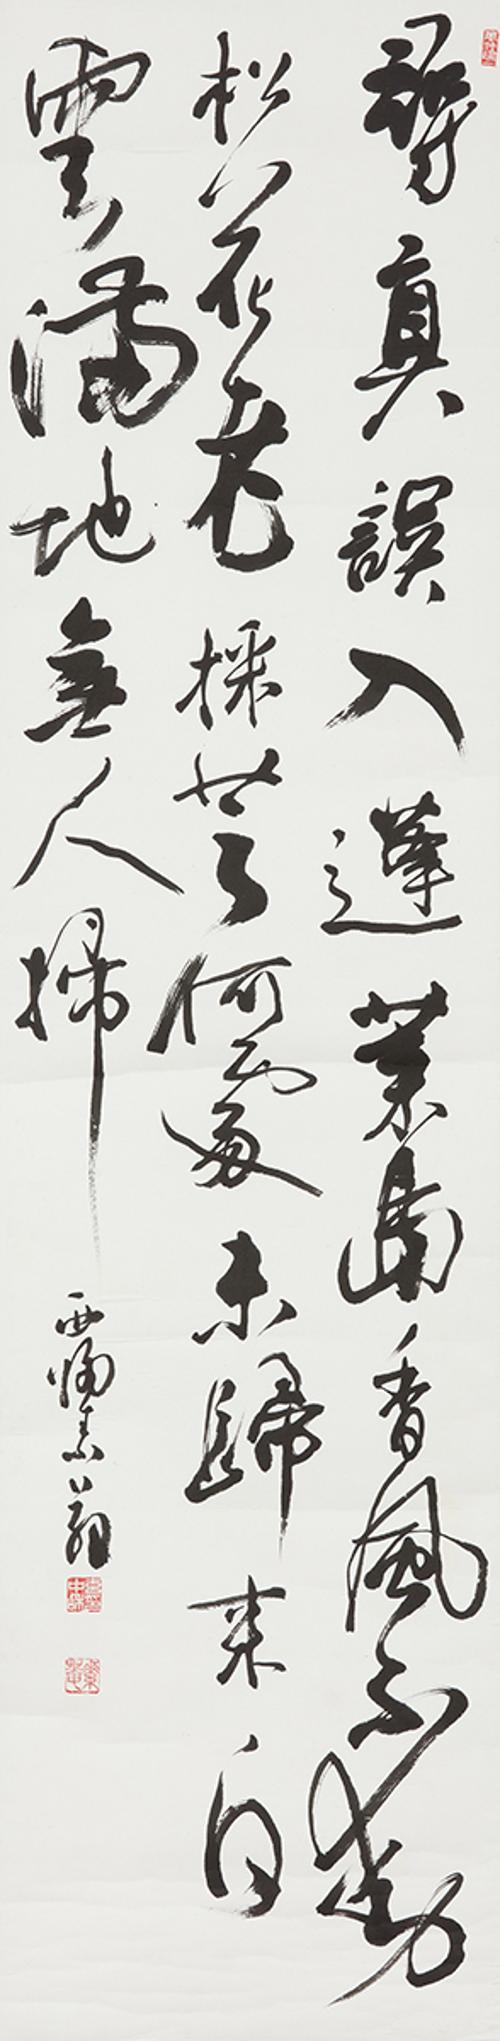 尋眞誤入蓬萊島香風不動
松花老採芝何處未歸來白
雲滿地無人掃